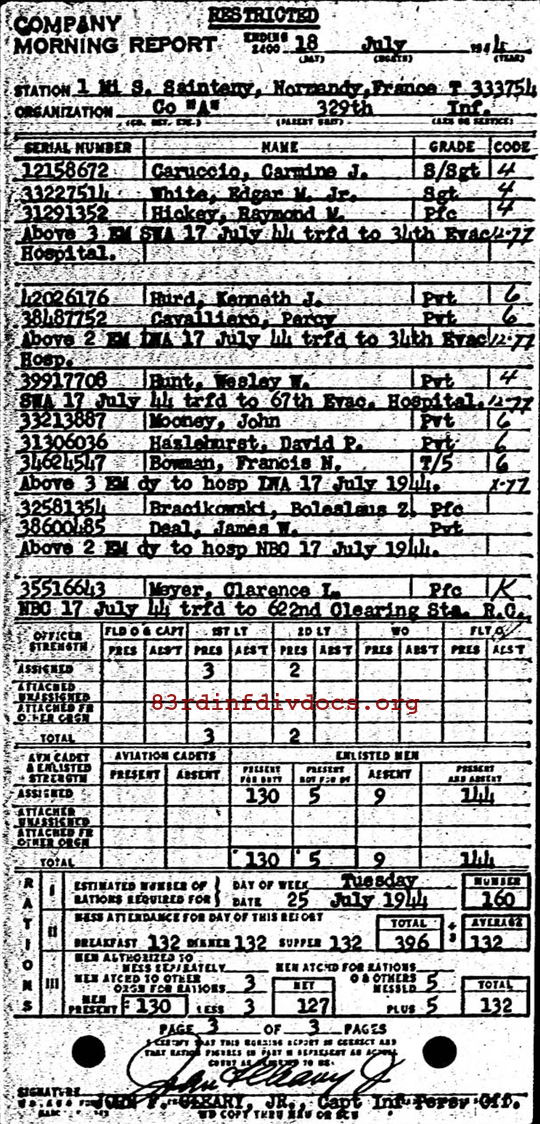 RESTRICTED
COMPANY
MORNING REPORT ENDING 2400 18 July 1944
(DAY) (MONTH) (YEAR)
STATION 1 Mi S. Sainteny, Normandy, France T 333754
ORGANIZATION Co "A" 329th Inf.
(CO. DET. ETC.) (PARENT UNIT) (ARM OR SERVICE)
SERIAL NUMBER NAME GRADE CODE
12158672 Caruccio, Carmine J. S/Sgt 4
33227514 White, Edgar M. Jr. Sgt 4
31291352 Hickey, Raymond M. Pfc 4
Above 3 EM SWA 17 July 44 trfd to 34th Evac 12-77
Hospital.
42026176 Hurd, Kenneth J. Pvt 6
38487752 Cavalliero, Percy Pvt 6
Above 2 EM LWA 17 July 44 trfd to 34th Evac 12-77
Hosp.
39917708 Hunt, Wesley W. Pvt 4
SWA 17 July 44 trfd to 67th Evac. Hospital. 12-77
33213887 Mooney, John Pvt 6
31306036 Hazlehurst, David P. Pvt 6
34624547 Bowman, Francis N. T/5 6
Above 3 EM dy to hosp LWA 17 July 1944. X-77
32581354 Bracikowski, Boleslaus Z. Pfc
38600485 Deal, James W. Pvt
Above 2 EM dy to hosp NBC 17 July 1944.
35516643 Meyer, Clarence L. Pfc K
NBC 17 July 44 trfd to 622nd Clearing Sta. R.C.
OFFICER STRENGTH FLD O & CAPT 1ST LT 2D LT WO FLT O
PRES ABS'T PRES ABS'T PRES ABS'T PRES ABS'T PRES ABS'T
ASSIGNED 3 2
ATTACHED UNASSIGNED
ATTACHED FR OTHER ORGN
83rdinfdivdocs.org
TOTAL 3 2
AVN CADET & ENLISTED STRENGTH AVIATION CADETS ENLISTED MEN
PRESENT ABSENT PRESENT FOR DUTY PRESENT NOT FOR DY ABSENT PRESENT AND ABSENT
ASSIGNED 130 5 9 144
ATTACHED UNASSIGNED
ATTACHED FR OTHER ORGN
TOTAL 130 5 9 144
RATIONS
I ESTIMATED NUMBER OF RATIONS REQUIRED FOR DAY OF WEEK Tuesday NUMBER
DATE 25 July 1944 160
II MESS ATTENDANCE FOR DAY OF THIS REPORT TOTAL ÷ 3 AVERAGE
BREAKFAST 132 DINNER 132 SUPPER 132 396 132
III MEN AUTHORIZED TO MESS SEPARATELY MEN ATCHD FOR RATIONS
MEN ATCHD TO OTHER ORGN FOR RATIONS 3 NET O & OTHERS MESSED 5 TOTAL
MEN PRESENT 130 LESS 3 127 PLUS 5 132
PAGE 3 OF 3 PAGES
I CERTIFY THAT THIS MORNING REPORT IS CORRECT AND
THAT RATION FIGURES IN PART III REPRESENT AN ACTUAL
SIGNATURE
JOHN F. CLEARY, JR., Capt Inf Persv Off.